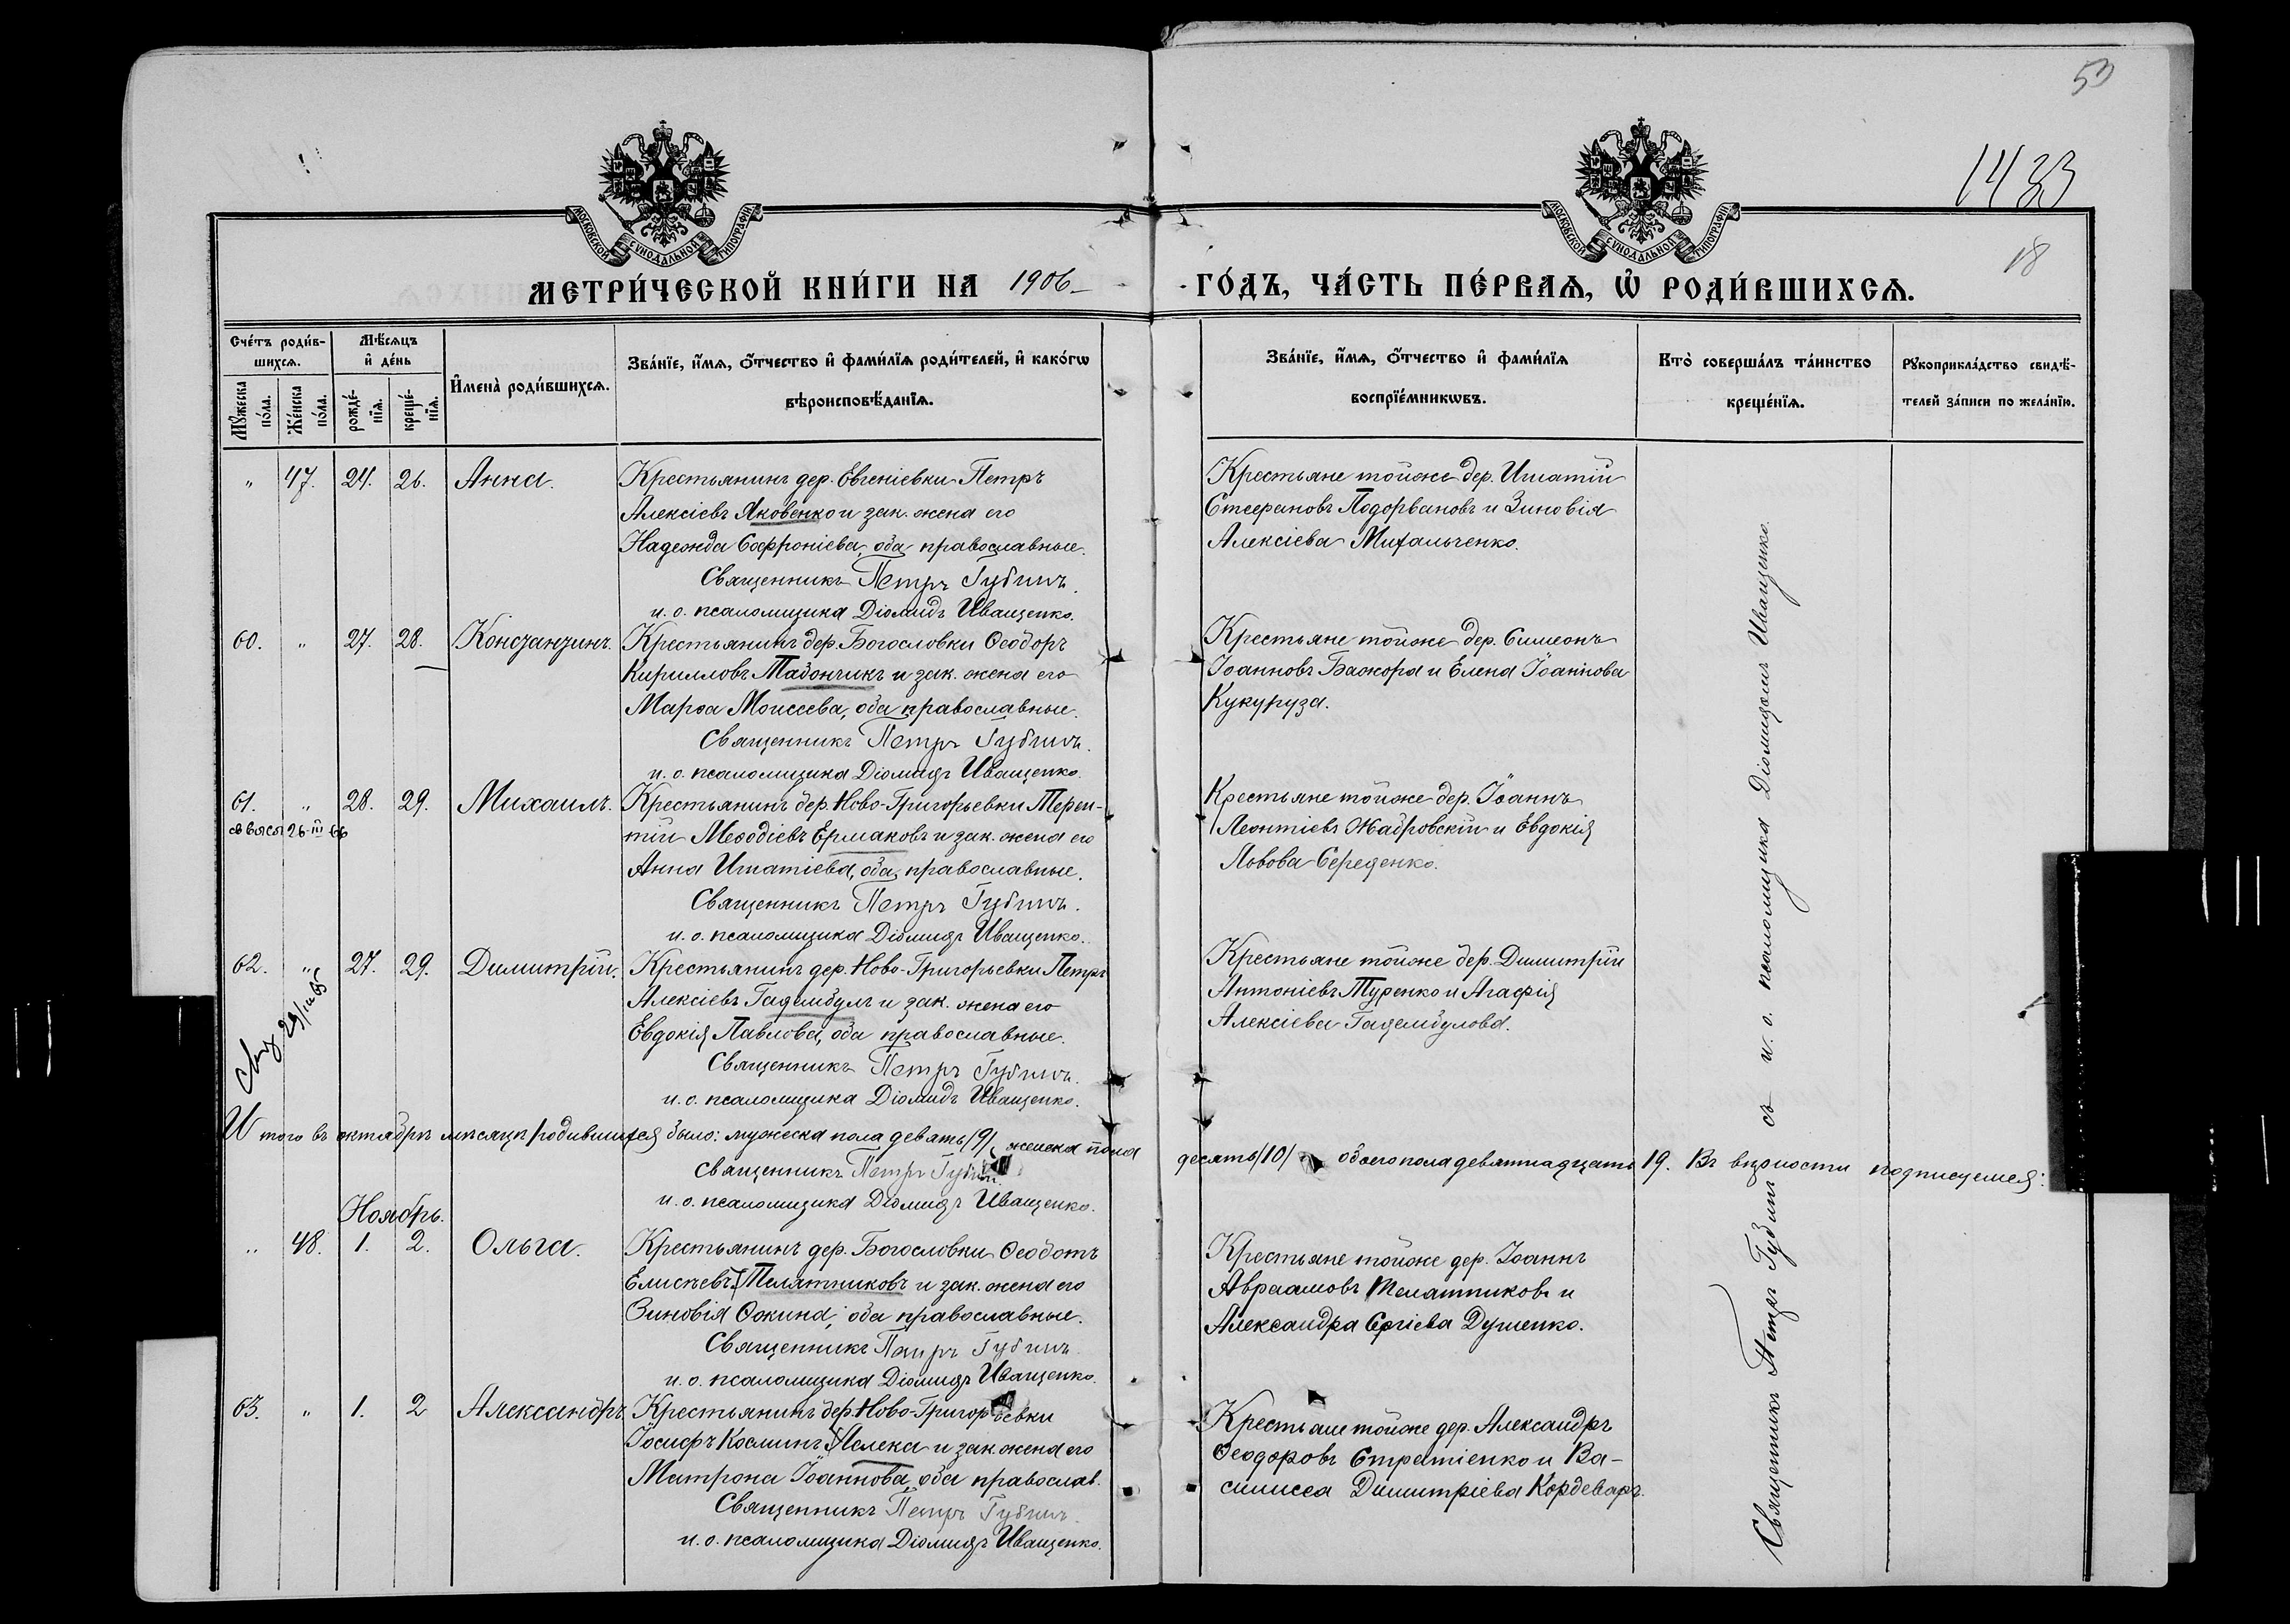 50
1433
18
МОСКОВСКОЙ СУНОДАЛЬНОЙ ТИПОГРАФІИ
МОСКОВСКОЙ СУНОДАЛЬНОЙ ТИПОГРАФІИ
МЕТРИ́ЧЕСКОЙ КНИ́ГИ НА 1906
ГО́ДЪ, ЧА́СТЬ ПЕ́РВАѦ, Ѡ҆ РОДИ́ВШИХСѦ.
Сче́тъ роди́в-
шихся.
Мꙋ́жеска
по́ла.
Же́нска
по́ла.
Мѣ́сяцъ
и҆ де́нь
рожде́-
нїѧ.
креще́-
нїѧ.
И҆мена̀ роди́вшихсѧ.
Зва́нїе, и҆́мѧ, ѻ҆́тчество и҆ фами́лїѧ роди́телей, и҆ како́гѡ
вѣроисповѣ́данїѧ.
Зва́нїе, и҆́мѧ, ѻ҆́тчество и҆ фами́лїѧ
воспрїе́мникѡвъ.
Кто̀ соверша́лъ та́инство
креще́нїѧ.
Рꙋкоприкла́дство свидѣ́-
телей за́писи по жела́нїю.
" 47. 24. 26. Анна.
Крестьянинъ дер. Евгеніевки Петръ
Алексіевъ Яковенко и зак. жена его
Надежда Софроніева, оба православные.
Священникъ Петръ Губинъ.
и. о. псаломщика Діомидъ Иващенко.
Крестьяне тойже дер. Игнатій
Стефановъ Подорвановъ и Зиновія
Алексіева Михальченко.
60. " 27. 28. Константинъ.
Крестьянинъ дер. Богословки Ѳеодоръ
Кирилловъ Тадончикъ и зак. жена его
Марѳа Моисеева, оба православные.
Священникъ Петръ Губинъ.
и. о. псаломщика Діомидъ Иващенко.
Крестьяне тойже дер. Симеонъ
Іоанновъ Бажора и Елена Іоаннова
Кукуруза.
61. " 28. 29. Михаилъ.
26 III 66
Крестьянинъ дер. Ново-Григорьевки Терен-
тій Меѳодіевъ Ермаковъ и зак. жена его
Анна Игнатіева, оба православные.
Священникъ Петръ Губинъ.
и. о. псаломщика Діомидъ Иващенко.
Крестьяне тойже дер. Іоаннъ
Леонтіевъ Жадровскій и Евдокія
Львова Середенко.
62. " 27. 29. Димитрій.
Крестьянинъ дер. Ново-Григорьевки Петръ
Алексіевъ Гаджибулъ и зак. жена его
Евдокія Павлова, оба православные.
Священникъ Петръ Губинъ.
и. о. псаломщика Діомидъ Иващенко.
Крестьяне тойже дер. Димитрій
Антоніевъ Туренко и Агафія
Алексіева Гаджибулова.
Итого въ октябрѣ мѣсяцѣ родившихся было: мужеска пола девять /9/, женска пола
десять /10/ обоего пола девятнадцать 19. Въ вѣрности подписуемся:
Священникъ Петръ Губинъ.
и. о. псаломщика Діомидъ Иващенко.
Ноябрь.
" 48. 1. 2. Ольга.
Крестьянинъ дер. Богословки Ѳеодотъ
Елисѣевъ Телятниковъ и зак. жена его
Зиновія Ѳокина, оба православные.
Священникъ Петръ Губинъ.
и. о. псаломщика Діомидъ Иващенко.
Крестьяне тойже дер. Іоаннъ
Авраамовъ Телятниковъ и
Александра Сергіева Душенко.
63. " 1. 2 Александръ
Крестьянинъ дер. Ново-Григорьевки
Іосифъ Косминъ Пелека и зак. жена его
Матрона Іоаннова, оба православ.
Священникъ Петръ Губинъ.
и. о. псаломщика Діомидъ Иващенко.
Крестьяне тойже дер. Александръ
Ѳеодоровъ Стратіенко и Ва-
силисса Димитріева Кордеваръ.
Священникъ Петръ Губинъ съ и. о. псаломщика Діомидомъ Иващенко.